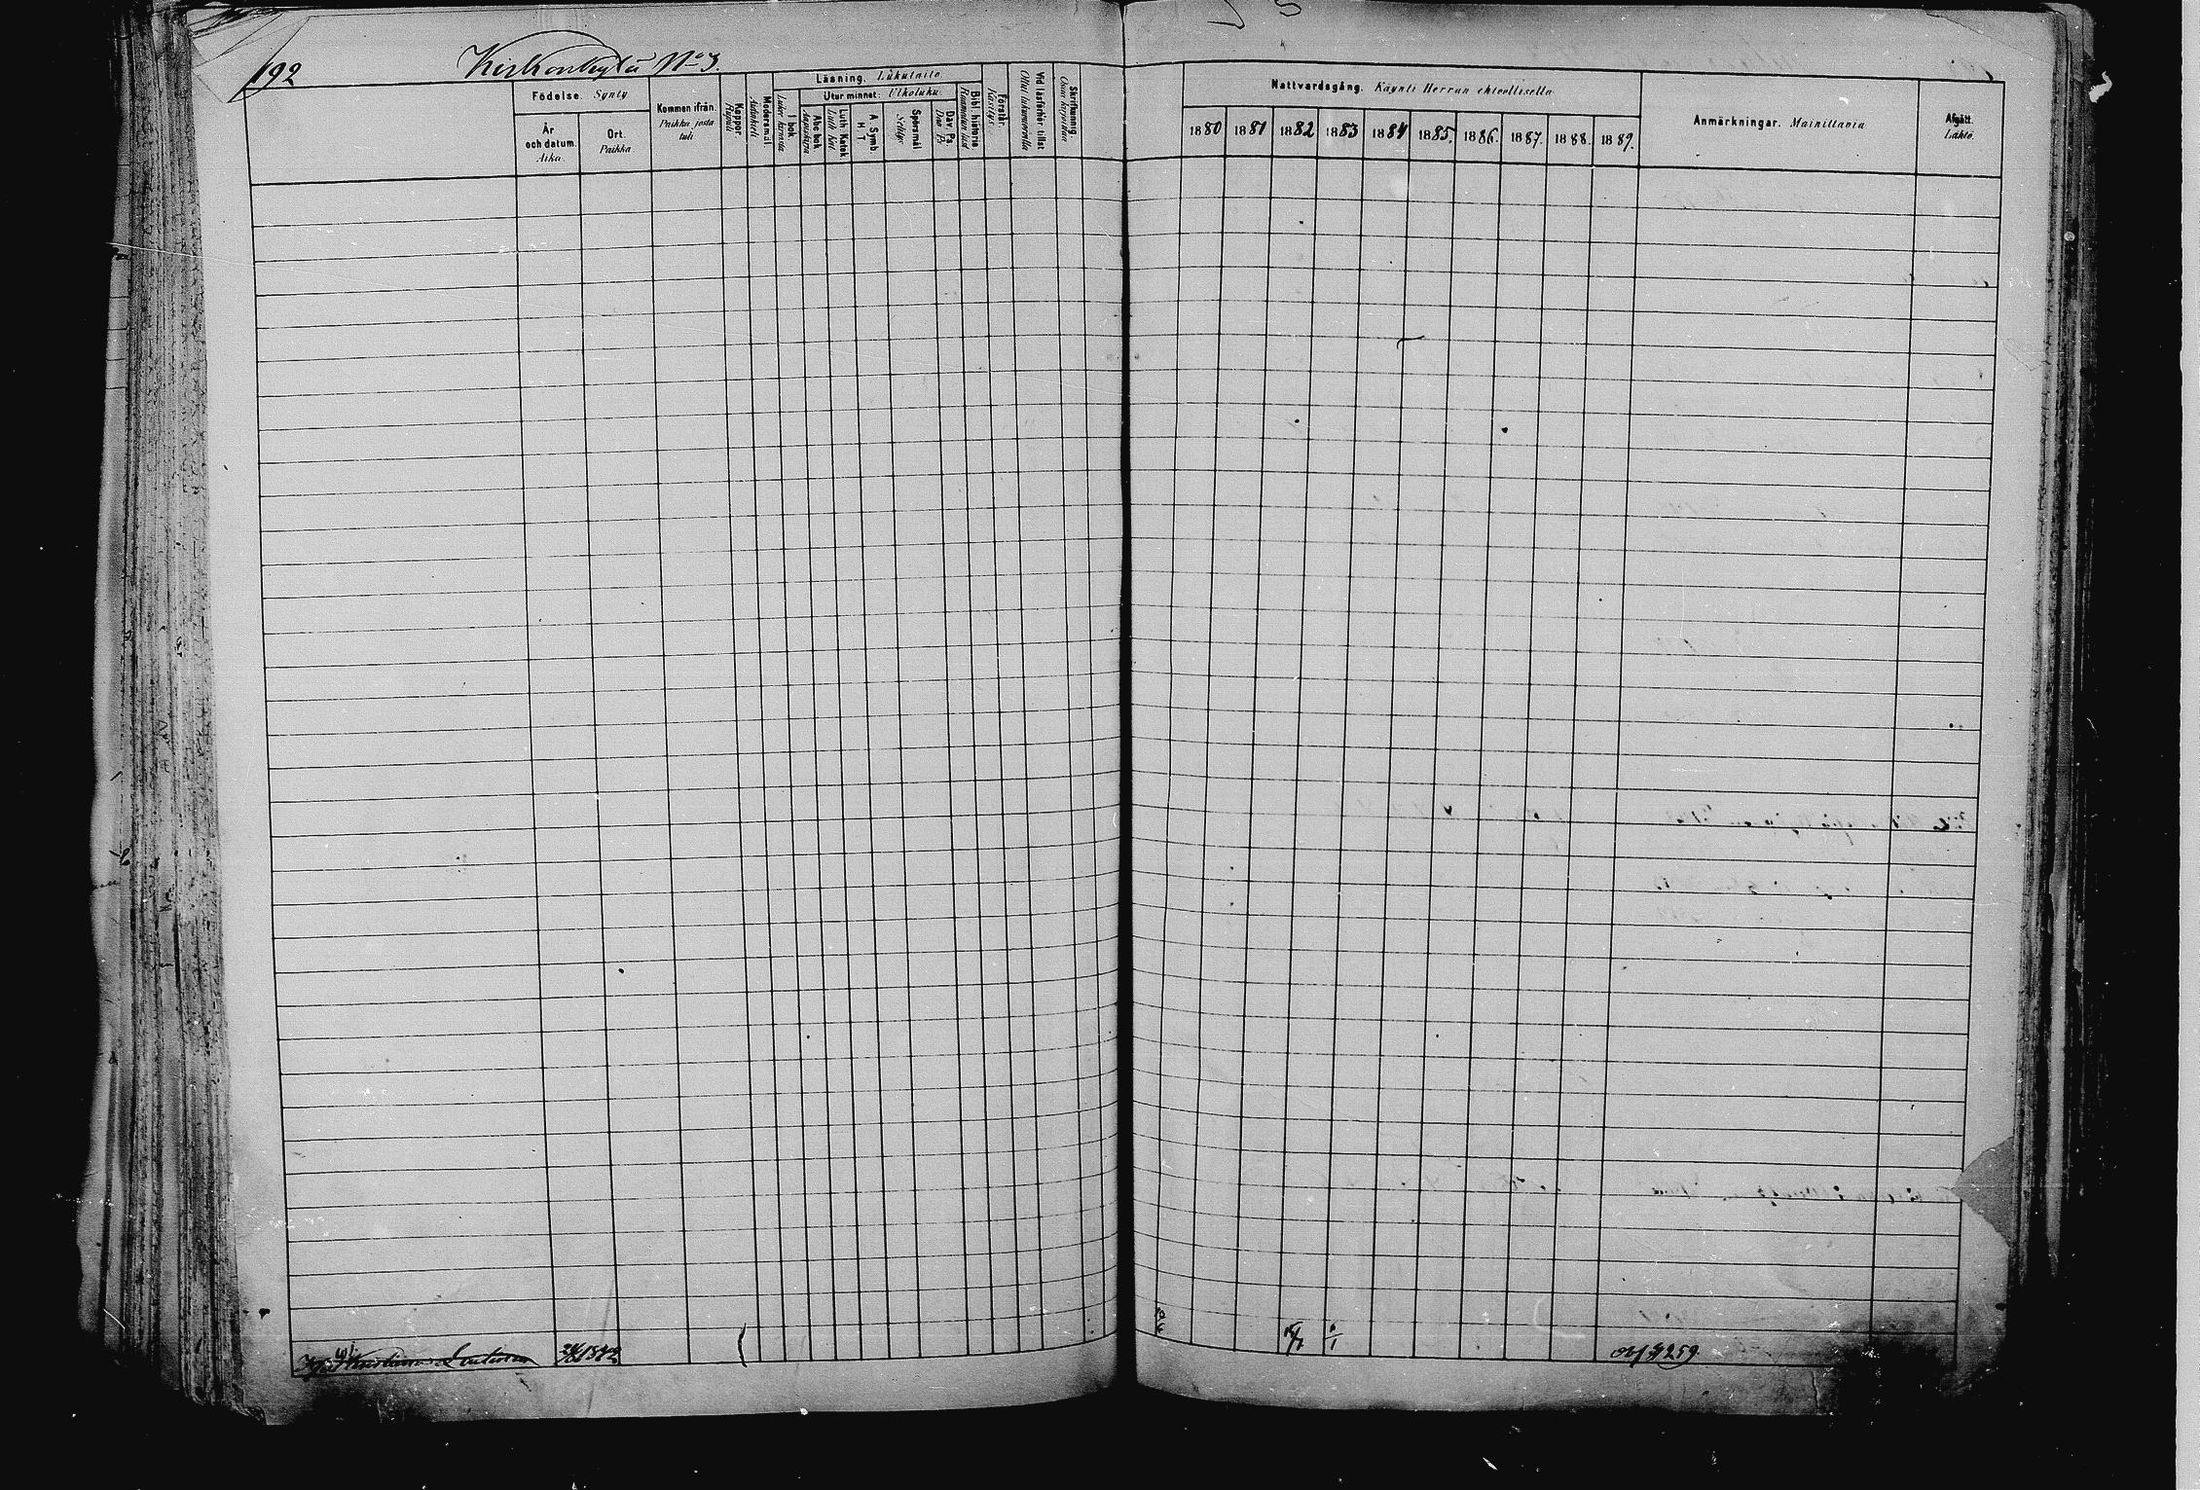 192
Kirkonkylä No 3.
Födelse. Synty.
År och datum. Aika.
Ort. Paikka
Kommen ifrån. Paikka josta tuli.
Koppor. Rupuli.
Modersmål. Äidinkieli.
Läsning. Lukutaito
I bok. Luku kirjasta
Utur minnet: Ulkoluku.
Abc bok Aapiskirja
Luth. Katek. Luth. Kat.
A. Symb. H T.
Spörsmål Selitys
Dav. Ps. Dav. Ps.
Bibl. historia Raamatun hist
Förstår. Käsitys.
Vid läsförhör tillst Ollut lukuvuorolla
Skrifkunnig Osaa kirjoittaa
Nattvardsgång. Käynti Herran ehtoollisella
1880 1881 1882 1883 1884 1885. 1886. 1887. 1888. 1889.
Anmärkningar. Mainittavia
Afgått. Lähtö.
259.